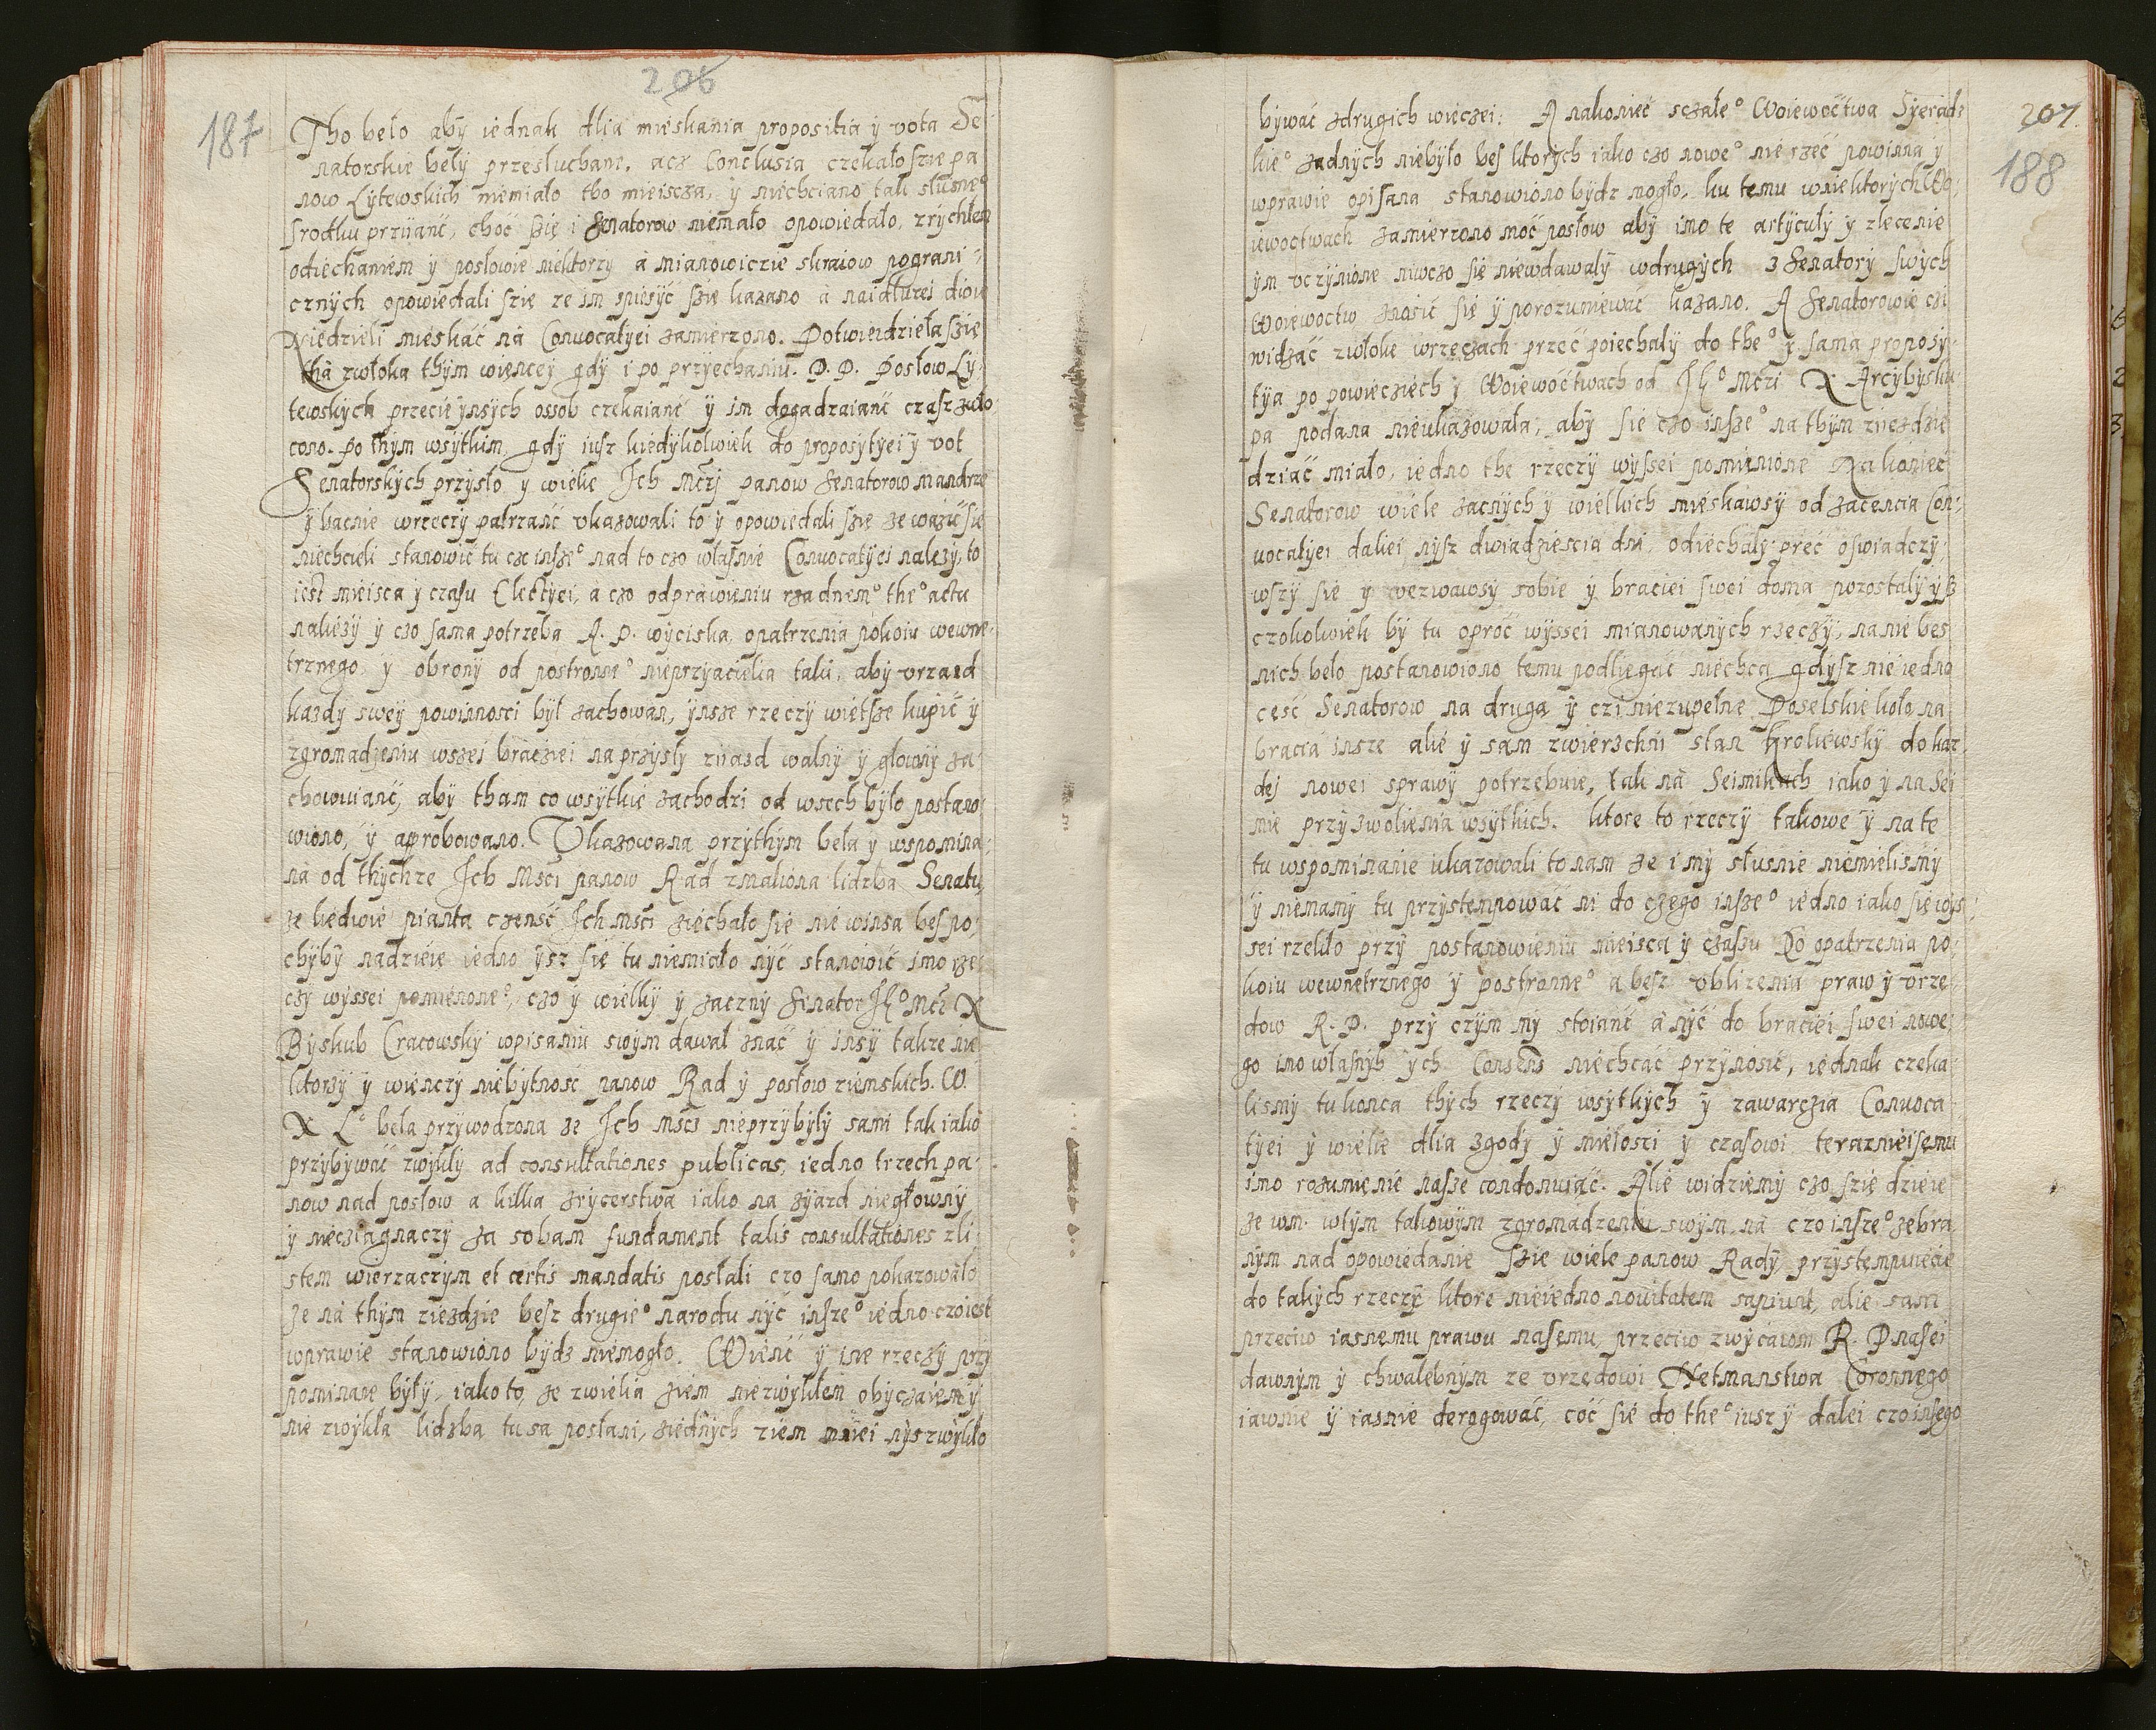 206
187
Tho beło aby iednak dlia mieskania propositia ÿ vota Se-
natorskie beły przesłuchane, acz Conclusia czekało szie pa
now Lÿtewskich niemiało tho mieiscza, ÿ niechciano tak słusne°
srodku prziianć, choć szię i Senatorow niemało opowiedało, zrÿchłem
odiechaniem ÿ posłowie niektorzy a mianowiczie skraiow pograni-
cznÿch opowiedali szie ze im spiesÿć szie kazano a naidłuzei dwu
Niedzieli mieskać na Conuocatÿei zamierzono. Potwierdzieła szie
tha zwłoka thÿm wiencey gdÿ i po przÿechaniu. P. P. Posłow Lÿ-
tewskÿch przecie ÿnsÿch ossob czekaianć ÿ im dogadzaianć czasz zwło
cono. Po thÿm wsÿtkim, gdÿ iusz kiedÿkolwiek do proposÿtÿei ÿ vot
Senatorskÿch przÿsło y wielie Ich Mczj panow Senatorow mandrze
ÿ bacnie wrzeczÿ patrzanć vkazowali to ÿ opowiedali szie ze wazÿć sie
niechcieli stanowić tu cz insze° nad to czo własnie Conuocatÿei nalezÿ, to
iest mieisca ÿ czasu Electÿei, a czo odprawieniu rzadnem° the° actu
nalezÿ ÿ czo sama potrzeba R. P. wÿciska, opatrzenia pokoiu wewne-
trznego, ÿ obronÿ od postronne° nieprzÿacielia taki, abÿ vrzaed
kazdÿ sweÿ powinnosci bÿł zachowan, ÿnsze rzeczÿ wietsze kupić ÿ
zgromadzeniu wszei bracziei na przÿsłÿ ziiazd walnÿ ÿ głownÿ za-
chowuianć, abÿ tham co wsÿtkie zachodzi od wsech bÿło postano-
wiono, ÿ aprobowano. Vkazowana przÿthÿm beła y wspomina-
na od thÿchze Ich Msci panow Rad zmaliona lidzba Senatu,
ze liedwie pianta czensć Ich msci ziechało sie nie winsa bes po-
chÿbÿ nadzieie iedno ÿsz się tu niemiało nÿć stanowić imo rze-
czÿ wÿssei pomienone°, czo ÿ wielkÿ ÿ zacznÿ Senator Jeº Mcz X
Bÿskub Cracowskÿ wpisaniu swÿm dawał znać ÿ insÿ takze nie
ktorzÿ ÿ wienczÿ niebÿtnosć panow Rad ÿ posłow ziemskich. W.
X L° beła przÿwodzona ze Ich mscz nieprzÿbÿlÿ sami tak iako
przÿbÿwać zwÿklÿ ad consultationes publicas, iedno trzech pa-
now nad posłow a kilka zrÿcerstwa iako na zÿazd niegłownÿ
ÿ niecziagnaczÿ za sobam fundament talis consultationes zli-
stem wierzaczÿm et certis mandatis posłali czo samo pokazowało
ze na thÿm ziezdzie besz drugie° narodu nÿć insze° iedno czo iest
wprawie stanowiono bÿdz niemogło. Wienć ÿ ine rzeczÿ przÿ
pominane bÿłÿ, iako to, ze zwielia ziem niezwÿkłem obÿczaiem ÿ
nie zwÿkła lidzba tu sa posłani, ziednÿch ziem mniei nÿs zwÿkło
207.
188
bÿwać zdrugich wieczei: A nakoniec sczałe° Woiewoctwa Sÿeradz
kie° zadnÿch niebÿło bes ktorÿch iako czo nowe° nie rzeć powinna ÿ
wprawie opisana stanowiono bÿdz mogło, ku temu wniektorÿch Wo-
iewoctwach zamierzono moć posłow abÿ imo te artÿcułÿ ÿ zlecenie
ÿm vczÿnione niwczo sie niewdawalÿ wdrugÿch z Senatorÿ swÿch
Woiewoctw znosić się ÿ porozumiewać kazano. A Senatorowie czi
widzać zwłoke wrzeczach przeć poiechalÿ do the° ÿ sama proposÿ-
tÿa po powieciech ÿ Woiewoctwach od Jeº Mczi X Arcÿbÿsku-
pa podana nieukazowała, abÿ sie czo insze° na thÿm zieezdzie
dziać miało, iedno the rzeczÿ wÿssei pomienione Nakoniec
Senatorow wiele zacnÿch ÿ wielkich mieskawsÿ od zacencia Con-
uocatÿei daliei nÿsz dwiadziescia dni, odiechalÿ preć oswiadczÿ-
wszÿ sie ÿ wezwawsÿ sobie ÿ braciei swei doma pozostałÿ ÿz
czokolwiek bÿ tu oproć wÿssei mianowanÿch rzeczÿ, na nie bes
nich beło postanowiono temu podliegać niechca gdÿsz nie iedno
cesć Senatorow na druga ÿ czi niezupełne Poselskie koło na
bracia insze alie ÿ sam zwierzchni stan Kroliewskÿ do kaz
dej nowei sprawÿ potrzebuie, tak na Seimikach iako ÿ na Sei
mie przÿzwolienia wsÿtkich. Ktore to rzeczÿ takowe ÿ na te
tu wspominanie ukazowali to nam ze i mÿ słusnie niemielismÿ
ÿ niemamÿ tu przÿstempować ni do czego insze° iedno iako się wÿs-
sei rzekło przÿ postanowieniu mieisca ÿ czasu Do opatrzenia po-
koiu wewnetrznego ÿ postronne° a besz vblizenia praw ÿ vrze-
dow R. P. przÿ czÿm mÿ stoianć a nÿć do braciei swei nowe-
go imo własnÿh ÿch Consens niechcac przÿnosić, iednak czeka-
lismÿ tu konca thÿch rzeczÿ wsÿtkÿch ÿ zawarczia Conuoca
tÿei ÿ wielie dlia zgodÿ ÿ miełosci ÿ czasowi terazmieisemu
imo rozumienie nasze condonuiąc. Alie widziemÿ czo szie dzieie
ze wm. wtÿm takowÿm zgromadzeniu swÿm, na czo insze° zebra
nÿm nad opowiedanie szie wiele panow Radÿ, przÿstempuiecie
do takÿch rzeczÿ ktore nieiedno nowitatem sapiunt, alie sam
przeciw iasnemu prawu nasemu przeciw zwÿcaiom R. P nasei
dawnÿm ÿ chwalebnÿm ze vrzedowi Hetmanstwa Coronnego
iawnie ÿ iasnie derogować, coć się do the° iusz ÿ dalei czo insego